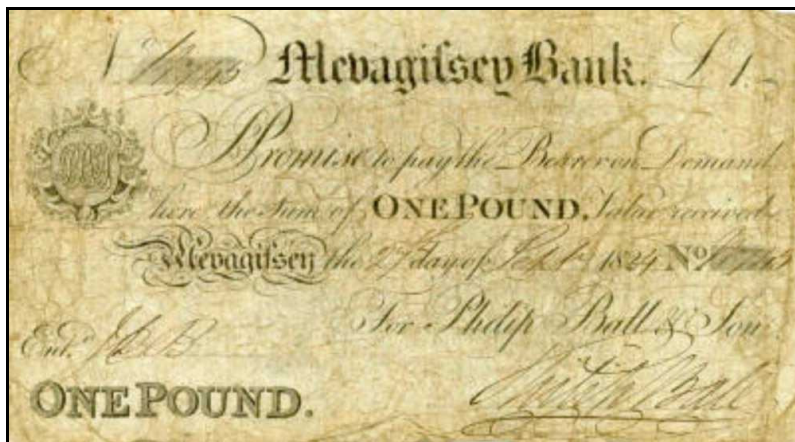 No Mevagiſsey Bank. £1.
I Promise to pay the Bearer on Demand
here the Sum of ONE POUND. Value received
Mevagiſsey the 27 day of Sept. 1824 No
For Philip Ball & Son.
Entd.
ONE POUND.
Philip Ball